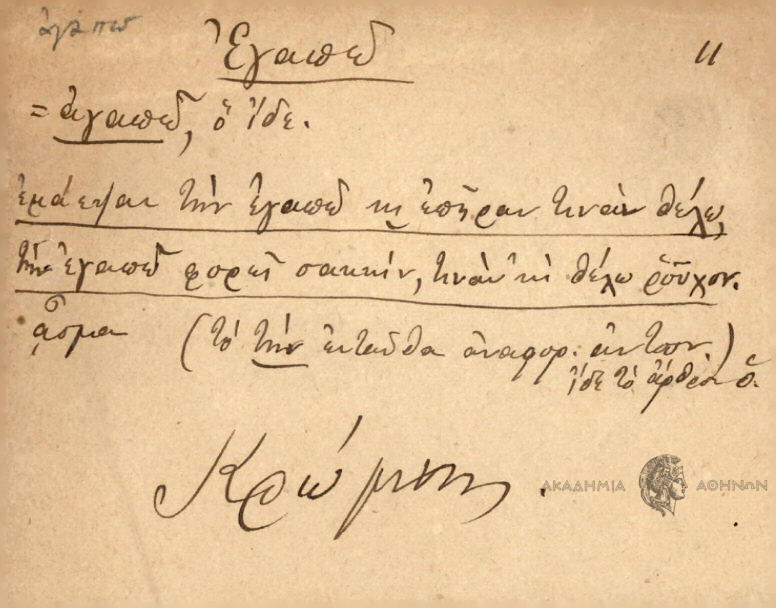 ἀγαπῶ
Ἐγαπῶ 11
= ἀγαπῶ, ὃ ἴδε.
ἐμάεψαι τὴν ἐγαπῶ κι ἐπῆραν τινὰν θέλω,
τὴν ἐγαπῶ φορεῖ σακκίν, τινὰν κι θέλω ῥοῦχον.
ᾆσμα (τὸ τὴν ἐνταῦθα ἀναφορ. ἀντων.)
ἴδε τὸ ἄρθρον ὁ.
Κρώμνης.
ΑΚΑΔΗΜΙΑ ΑΘΗΝΩΝ